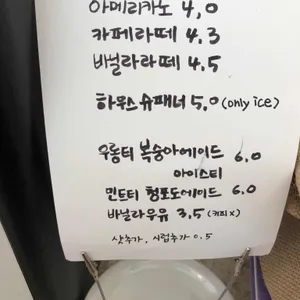 아메리카노 4,0
카페라떼 4.3
바닐라라떼 4.5
하우스슈패너 5,0 (only ice)
우롱티 복숭아에이드 6.0
아이스티
민트티 청포도에이드 6.0
바닐라우유 3,5 (커피x)
샷추가, 시럽추가 0.5